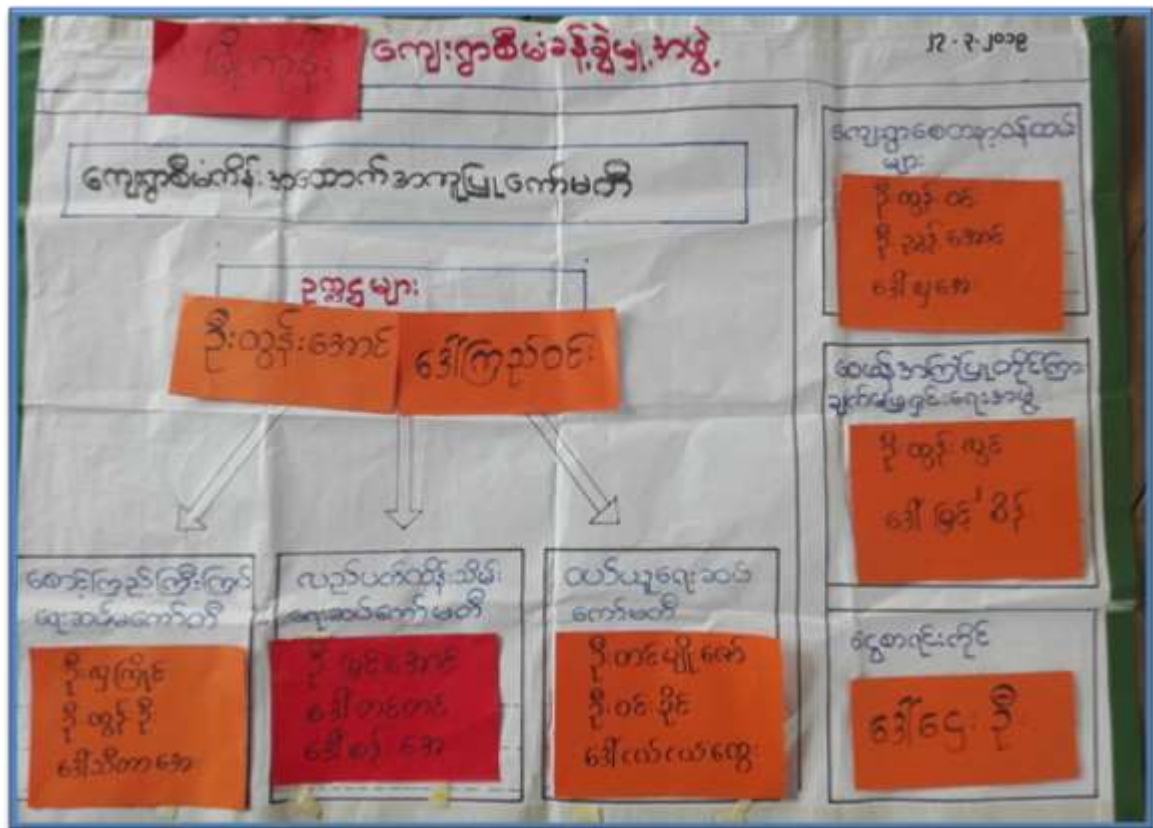 မြို့ကုန်း ကျေးရွာစီမံခန့်ခွဲမှု့အဖွဲ့
၂၇.၃.၂၀၁၉
ကျေးရွာစီမံကိန်းအထောက်အကူပြုကော်မတီ
ဥက္ကဋ္ဌများ
ဦးထွန်းအောင်
ဒေါ်ကြည်ဝင်း
စောင့်ကြည့်ကြီးကြပ်
ရေးဆပ်မကော်တီ
ဦးလှကြိုင်
ဦးထွန်းဦး
ဒေါ်သီတာအေး
လည်ပတ်ထိန်းသိမ်း
ရေးဆပ်ကော်မတီ
ဦးလှင်အောင်
ဒေါ်တင်တင်
ဒေါ်စန်းအေး
ဝယ်ယူရေးဆပ်
ကော်မတီ
ဦးတင်မျိုးဇော်
ဦးဝင်းခိုင်
ဒေါ်ငယ်ငယ်ထွေး
ကျေးရွာစေတနာ့ဝန်ထမ်း
များ
ဦးထွန်းဝင်း
ဦးညွန့်အောင်
ဒေါ်လှအေး
ဝေဖန်အကြံပြုတိုင်ကြား
ချက်ဖြေရှင်းရေးအဖွဲ့
ဦးထွန်းလွင်
ဒေါ်မြင့်စိန်
ငွေစာရင်းကိုင်
ဒေါ်ဌေးဦး